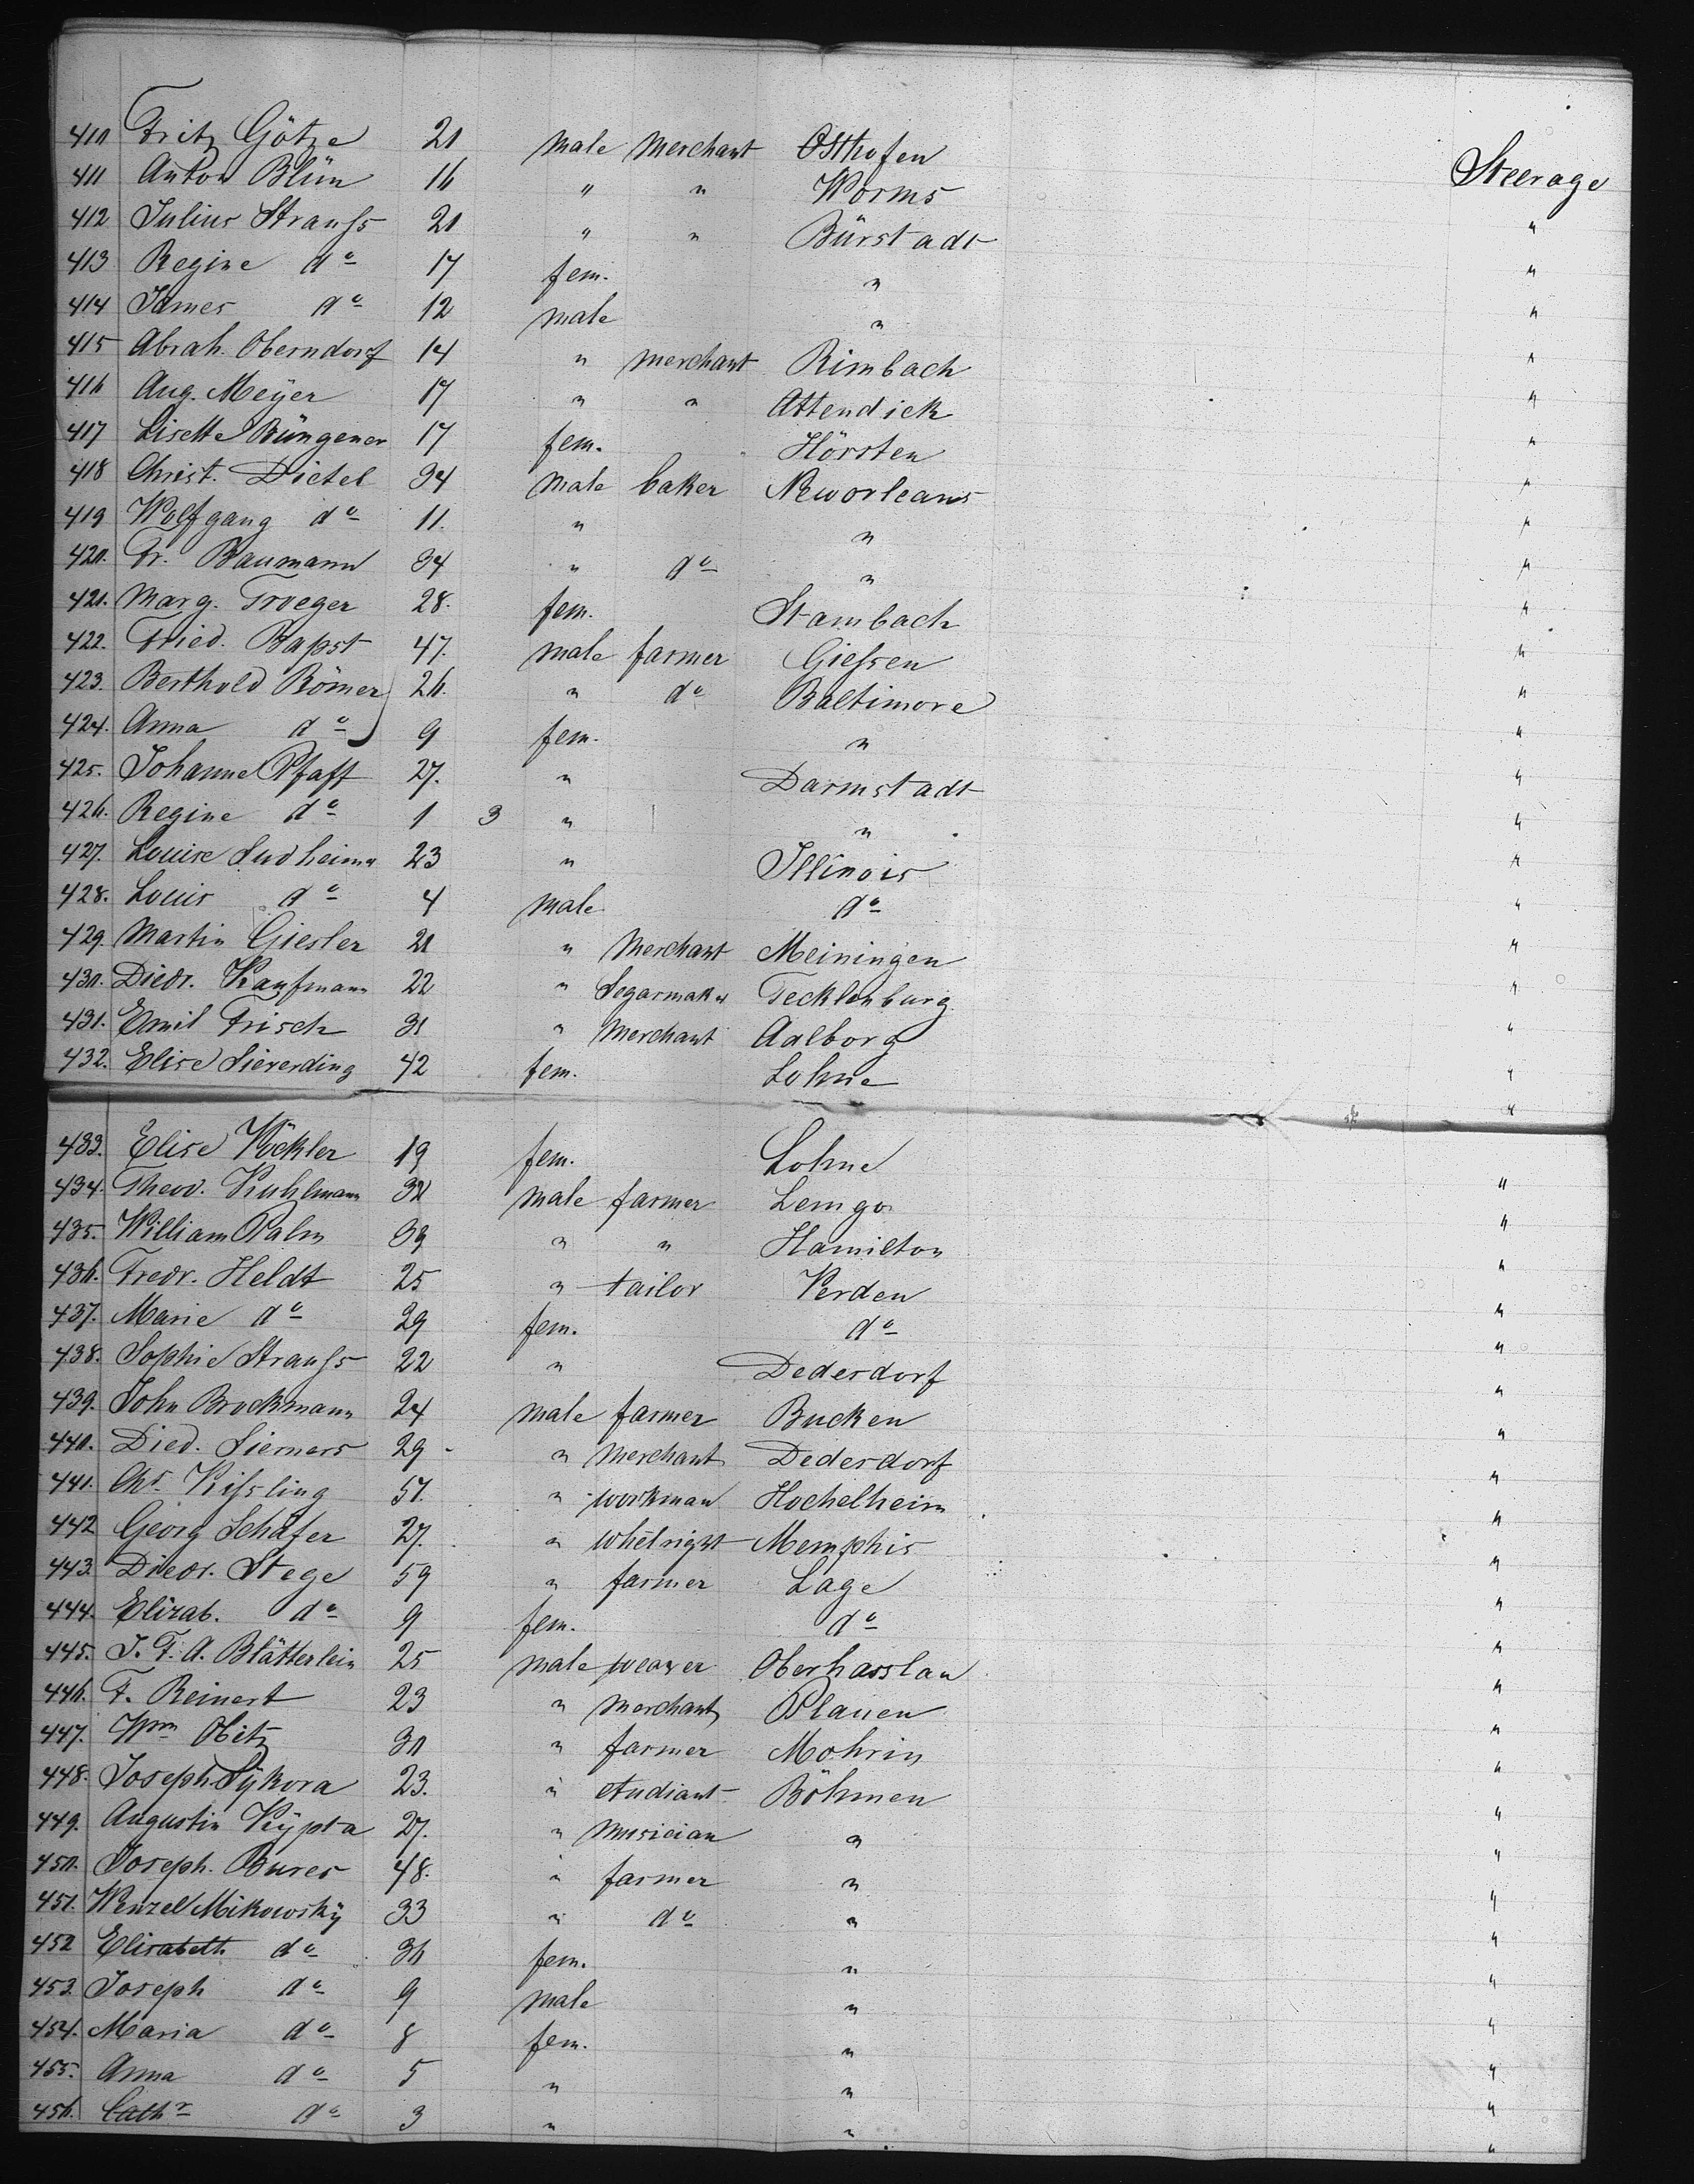 410 Fritz Götze 20 male Merchant Osthofen Steerage
411 Anton Blün 16 " " Worms "
412 Julius Strauſs 20 " " Bürstadt "
413 Regine do 17 fem. " "
414 James do 12 male " "
415 Abrah. Oberndorf 14 " merchant Rimbach "
416 Aug. Meÿer 17 " " Attendick "
417 Lisette Büngener 17 fem. Hörsten "
418 Christ. Dietel 34 male baker Neworleans "
419 Wolfgang do 11. " " "
420. Fr. Baumann 34 " do " "
421. Marg. Troeger 28. fem. Stambach "
422. Fried. Bapst 47. male farmer Gieſsen "
423. Berthold Römer 26. " do Baltimore "
424. Anna do 9 fem. " "
425. Johanne Pfaff 27. " Darmstadt "
426. Regine do 1 3 " " "
427. Louise Sudheimer 23 " Illinois "
428. Louis do 4 male do "
429. Martin Giesler 20 " Merchant Meiningen "
430. Diedr. Kaufmann 22 " Segarmaker Tecklenburg "
431. Emil Frisch 31 " Merchant Aalborg "
432. Elise Sieverding 42 fem. Lohne "
433. Elise Köckler 19 fem. Lohne "
434. Theod. Kuhlmann 32 male farmer Lemgo "
435. William Palm 39 " " Hamilton "
436. Fredr. Heldt 25 " tailor Verden "
437. Marie do 29 fem. do "
438. Sophie Strauſs 22 " Dedesdorf "
439. John Brockmann 24 male farmer Bucken "
440. Died. Siemers 29 " Merchant Dedesdorf "
441. Chr. Kiſsling 57. " workman Hochelheim "
442 Georg Schäfer 27. " Whelright Memphis "
443. Diedr. Stege 59 " farmer Lage "
444. Elizab. do 9 fem. do "
445. J. F. A. Blätterlein 25 male weaver Oberhasslau "
446. F. Reinert 23 " Merchant Plauen "
447. Wm Obitz 30 " farmer Mohrin "
448. Joseph Sÿkora 23. " etudiant Böhmen "
449. Augustin Kÿpta 27. " Musician " "
450. Joseph. Bures 48. " farmer " "
451. Wenzel Mikowskÿ 33 " do " "
452 Elisabeth do 36 fem. " "
453. Joseph do 9 male " "
454. Maria do 8 fem. " "
455. Anna do 5 " " "
456. Cathr do 3 " " "